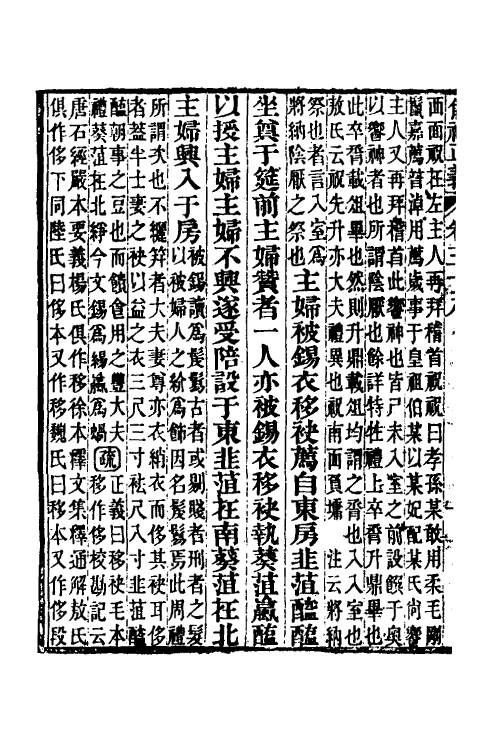 西面祝在左主人再拜稽首祝祝曰孝孫某敢用柔毛剛
鬣嘉薦普淖用薦歲事于皇祖伯某以某妃配某氏尚饗
主人又再拜稽首此饗神也皆尸未入室之前設饌于奧
以饗神者也所謂陰厭也餘詳特牲禮上卒脀升鼎畢也
此卒脀載俎畢也然則升鼎載俎均謂之脀也入入室也
敖氏云祝先升亦大夫禮異也祝南面負墉　注云將納
祭也者言入室爲
將納陰厭之祭也
主婦被錫衣移袂薦自東房韭菹醓醢
坐奠于筵前主婦贊者一人亦被錫衣移袂執葵菹蠃醢
以授主婦主婦不興遂受陪設于東韭菹在南葵菹在北
主婦興入于房
被錫讀爲髲鬄古者或剔賤者刑者之髮
以被婦人之紒爲飾因名髲鬄焉此周禮
所謂次也不纚笄者大夫妻尊亦衣綃衣而侈其袂耳侈
者蓋半士妻之袂以益之衣三尺三寸袪尺八寸韭菹醓
醢朝事之豆也而饋食用之豐大夫
禮葵菹在北綪今文錫爲緆蠃爲蝸
疏
正義曰移袂毛本
移作侈校勘記云
唐石經嚴本要義楊氏俱作移徐本釋文集釋通解敖氏
俱作侈下同陸氏曰侈本又作移魏氏曰移本又作侈段